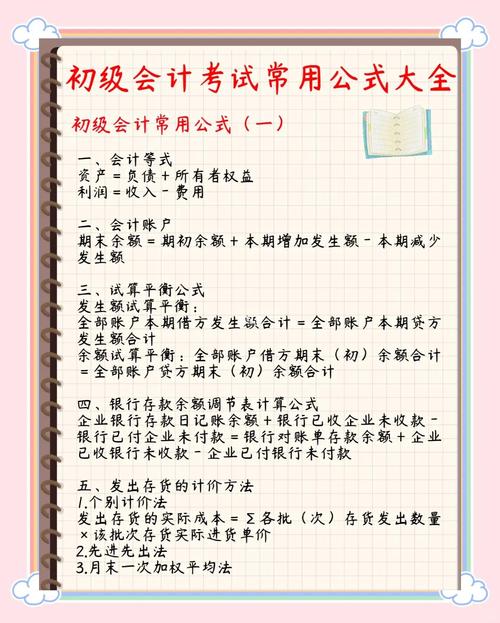 初级会计考试常用公式大全
初级会计常用公式（一）
一、会计等式
资产＝负债＋所有者权益
利润＝收入－费用
二、会计账户
期末余额＝期初余额＋本期增加发生额－本期减少
发生额
三、试算平衡公式
发生额试算平衡：
全部账户本期借方发生额合计＝全部账户本期贷方
发生额合计
余额试算平衡：全部账户借方期末（初）余额合计
＝全部账户贷方期末（初）余额合计
四、银行存款余额调节表计算公式
企业银行存款日记账余额＋银行已收企业未收款－
银行已付企业未付款＝银行对账单存款余额＋企业
已收银行未收款－企业已付银行未付款
五、发出存货的计价方法
1.个别计价法
发出存货的实际成本＝Σ各批（次）存货发出数量
×该批次存货实际进货单价
2.先进先出法
3.月末一次加权平均法